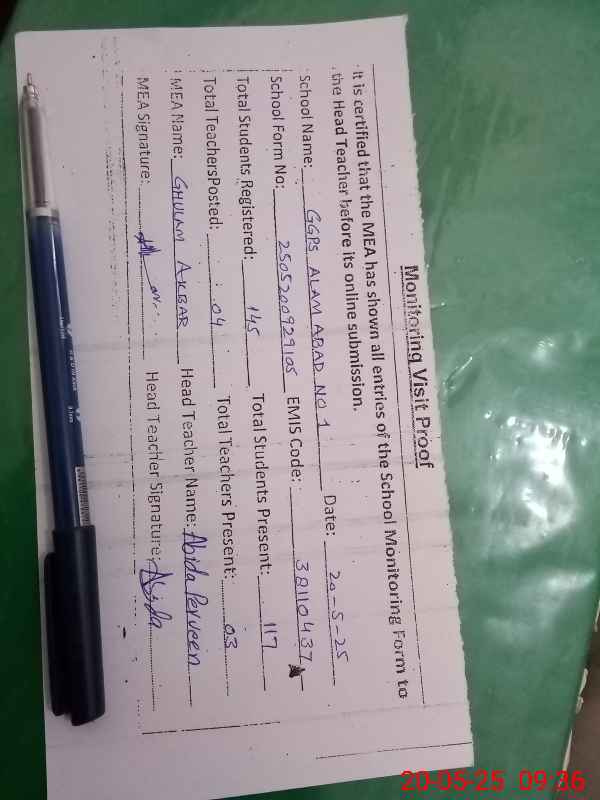 Monitoring Visit Proof
It is certified that the MEA has shown all entries of the School Monitoring Form to
the Head Teacher before its online submission.
School Name: GGPS ALAM ABAD NO 1 Date: 20-5-25
School Form No: 2505200929105 EMIS Code: 38110437
Total Students Registered: 145 Total Students Present: 117
Total TeachersPosted: 04 Total Teachers Present: 03
MEA Name: GHULAM AKBAR Head Teacher Name: Abida Perveen
MEA Signature: Head Teacher Signature: Abida
20-05-25 09:36